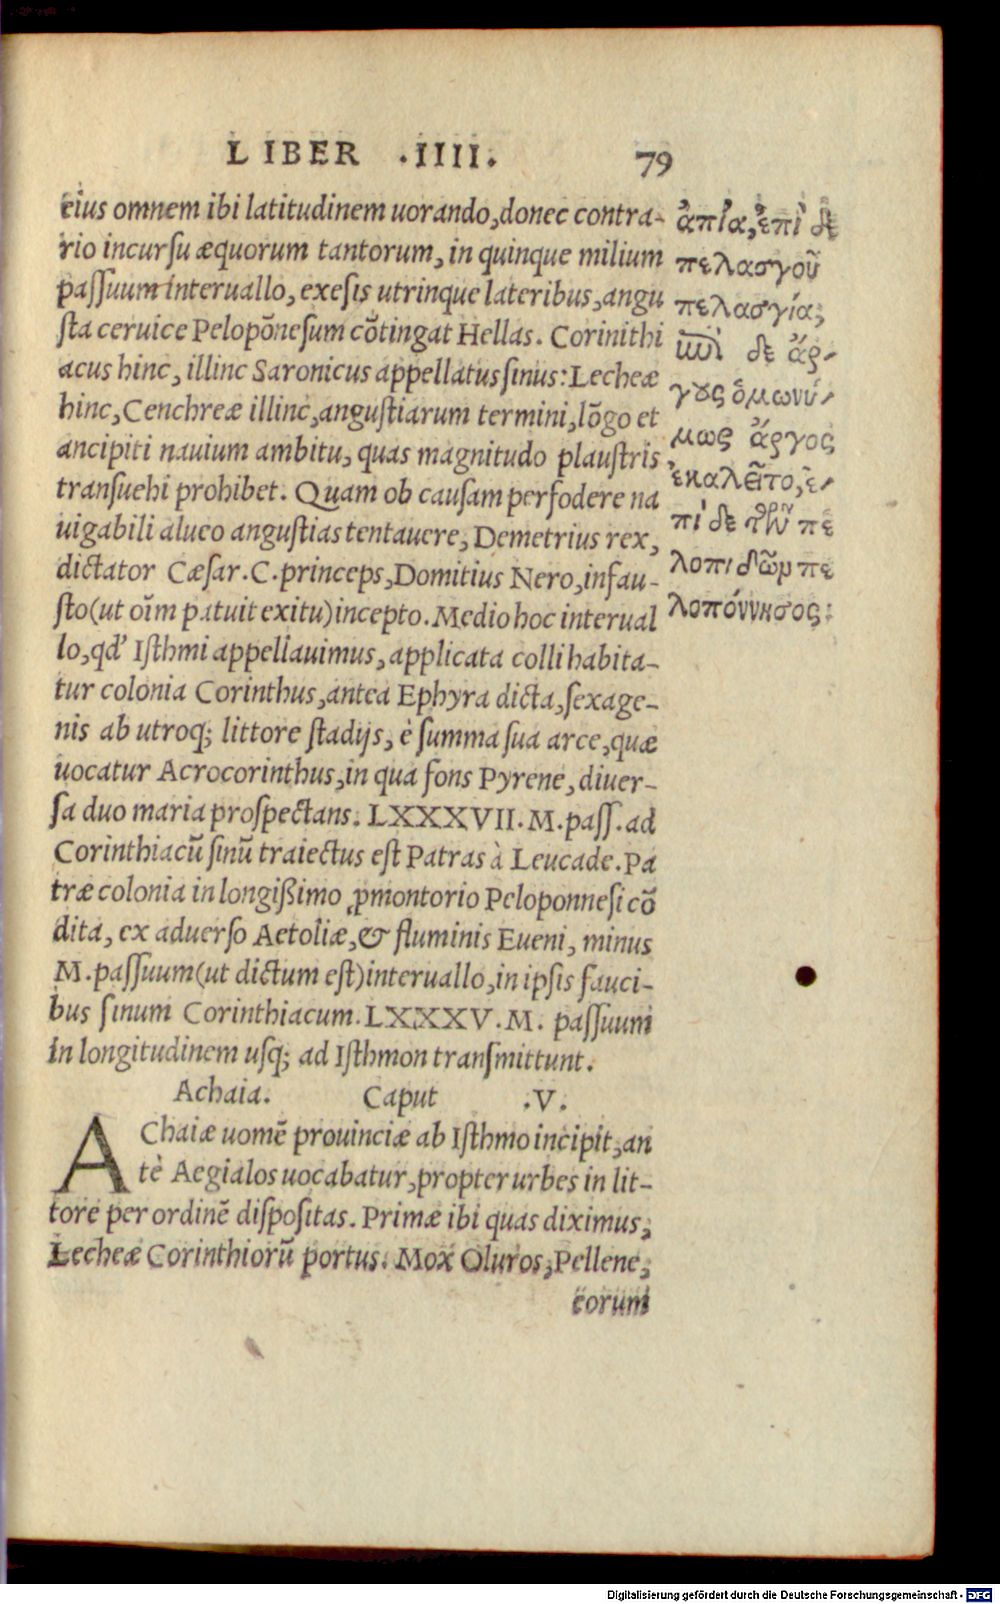 LIBER .IIII. 79
eius omnem ibi latitudinem uorando,donec contra-
rio incursu æquorum tantorum, in quinque milium
passuum interuallo, exesis utrinque lateribus, angu
sta ceruice Pelopōnesum cōtingat Hellas. Corinithi
acus hinc, illinc Saronicus appellatus sinus: Lecheæ
hinc, Cenchreæ illinc, angustiarum termini, lōgo et
ancipiti nauium ambitu, quas magnitudo plaustris
transuehi prohibet. Quam ob causam perfodere na
uigabili alueo angustias tentauere, Demetrius rex,
dictator Cæsar. C. princeps, Domitius Nero, infau-
sto (ut oīm patuit exitu) incepto. Medio hoc interual
lo, qd' Isthmi appellauimus, applicata colli habita-
tur colonia Corinthus, antea Ephyra dicta, sexage-
nis ab utroq; littore stadijs, è summa sua arce, quæ
uocatur Acrocorinthus, in qua fons Pyrene, diuer-
sa duo maria prospectans. LXXXVII. M. pass. ad
Corinthiacū sinū traiectus est Patras à Leucade. Pa
træ colonia in longißimo ꝓmontorio Peloponnesi cō
dita, ex aduerso Aetoliæ, & fluminis Eueni, minus
M. passuum (ut dictum est) interuallo, in ipsis fauci-
bus sinum Corinthiacum. LXXXV. M. passuum
in longitudinem usq; ad Isthmon transmittunt.
Achaia. Caput .V.
AChaiæ uomē prouinciæ ab Isthmo incipit, an
tè Aegialos uocabatur, propter urbes in lit-
tore per ordinē dispositas. Primæ ibi quas diximus,
Lecheæ Corinthiorū portus. Mox Oluros, Pellene,
eorum
ἀπία, ἐπὶ δὲ
πελασγοῦ
πελασγία,
ἐπὶ δὲ ἄρ-
γους ὁμωνύ-
μως ἄργος
ἐκαλεῖτο, ἐ-
πὶ δὲ τῶν πε
λοπιδῶν πε
λοπόννησος:
Digitalisierung gefördert durch die Deutsche Forschungsgemeinschaft - DFG